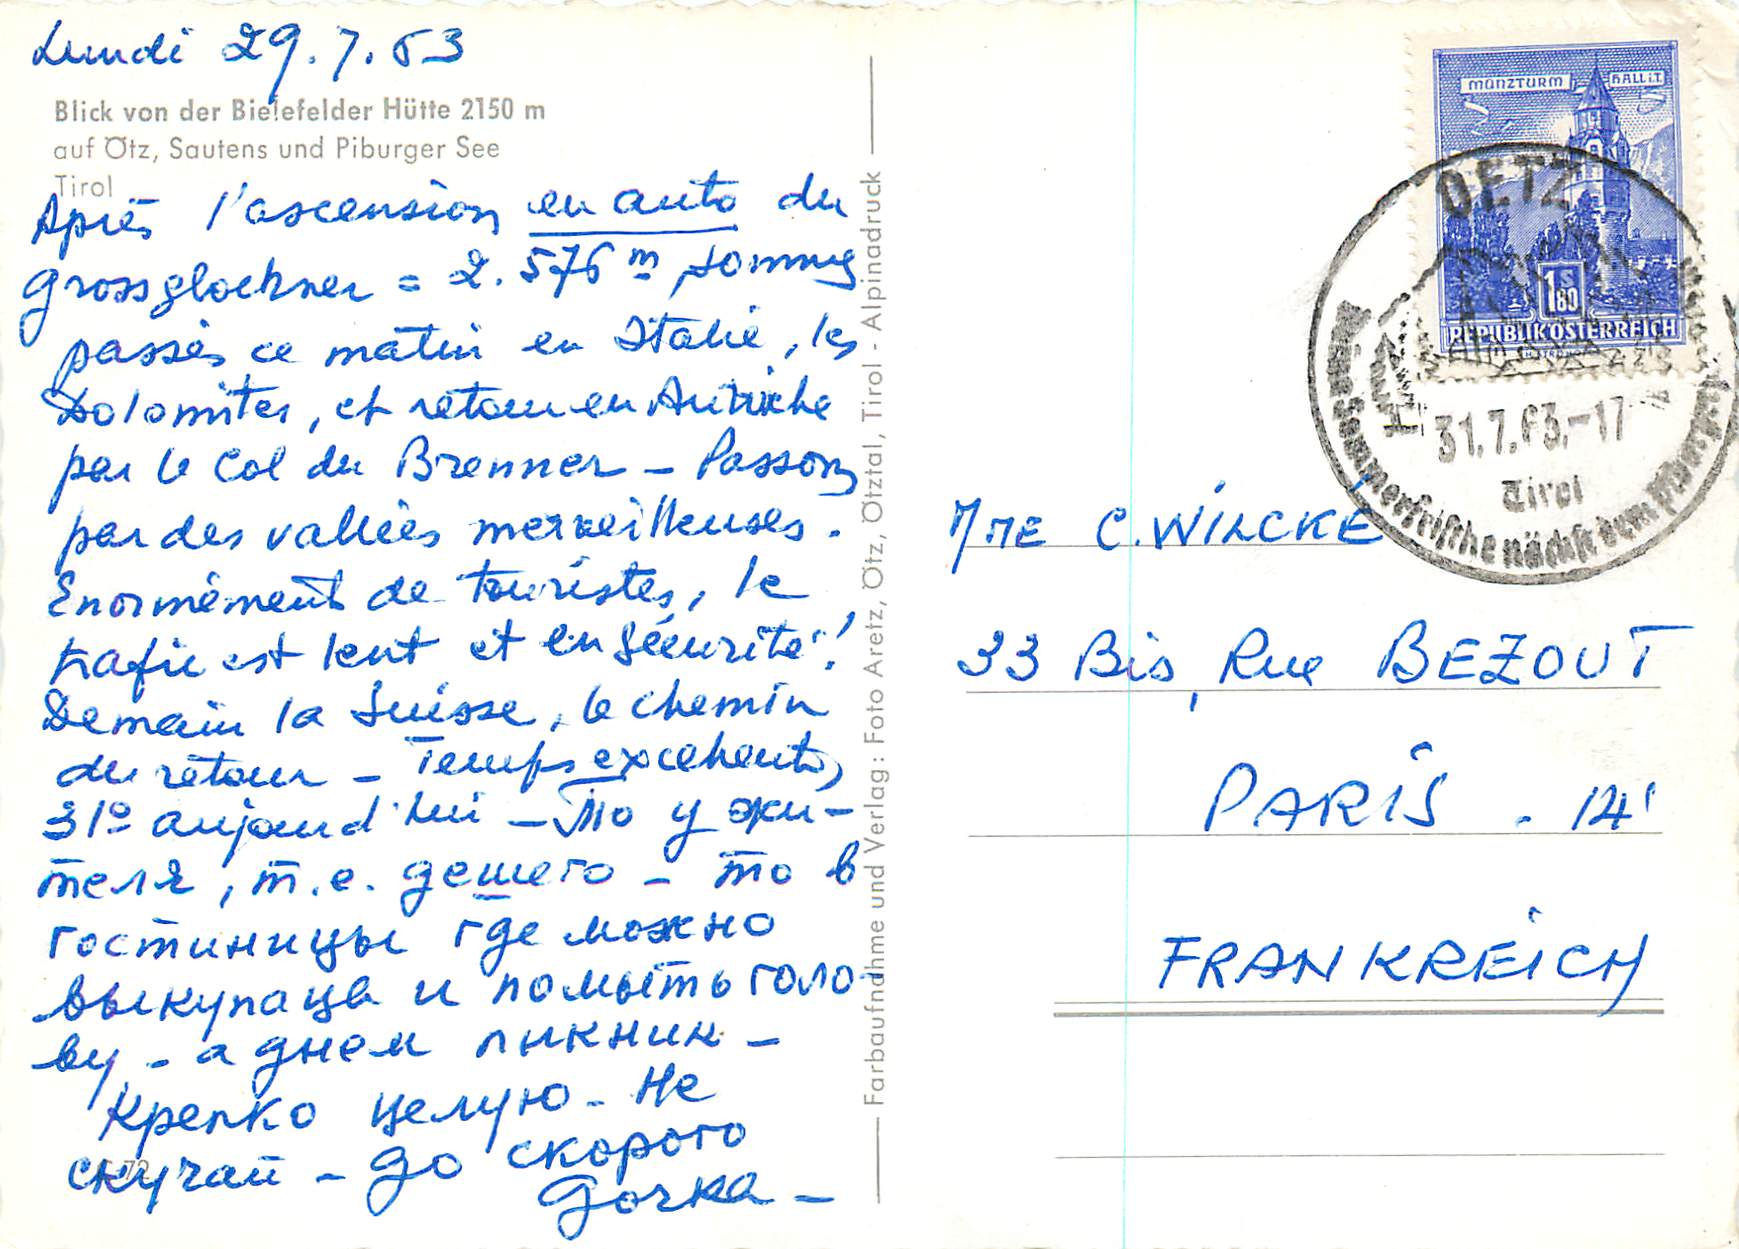 Lundi 29.7.63
Blick von der Bielefelder Hütte 2150 m
auf Ötz, Sautens und Piburger See
Tirol
Après l'ascension en auto du
Grossglockner = 2.576 m, sommes
passés ce matin en Italie, les
Dolomites, et retour en Autriche
par le Col du Brenner – Passons
par des vallées merveilleuses.
Enormément de touristes, le
trafic est lent et en sécurité!
Demain la Suisse, le chemin
du retour – Temps excellent,
31° aujourd'hui – То у жи-
теля, т.е. дешего – то в
гостиницы где можно
выкупаць и помыть голо-
ву – а днем пикник –
Крепко целую – Не
скучай – До скорого
Дочка –
Farbaufnahme und Verlag: Foto Aretz, Ötz, Ötztal, Tirol - Alpinadruck
MÜNZTURM HALL i.T.
S 1.80
REPUBLIK ÖSTERREICH
OETZ
31.7.63.-17
Tirol
Sommerfrische nächst dem
MME C. WILCKE
33 Bis, Rue BEZOUT
PARIS . 14'
FRANKREICH